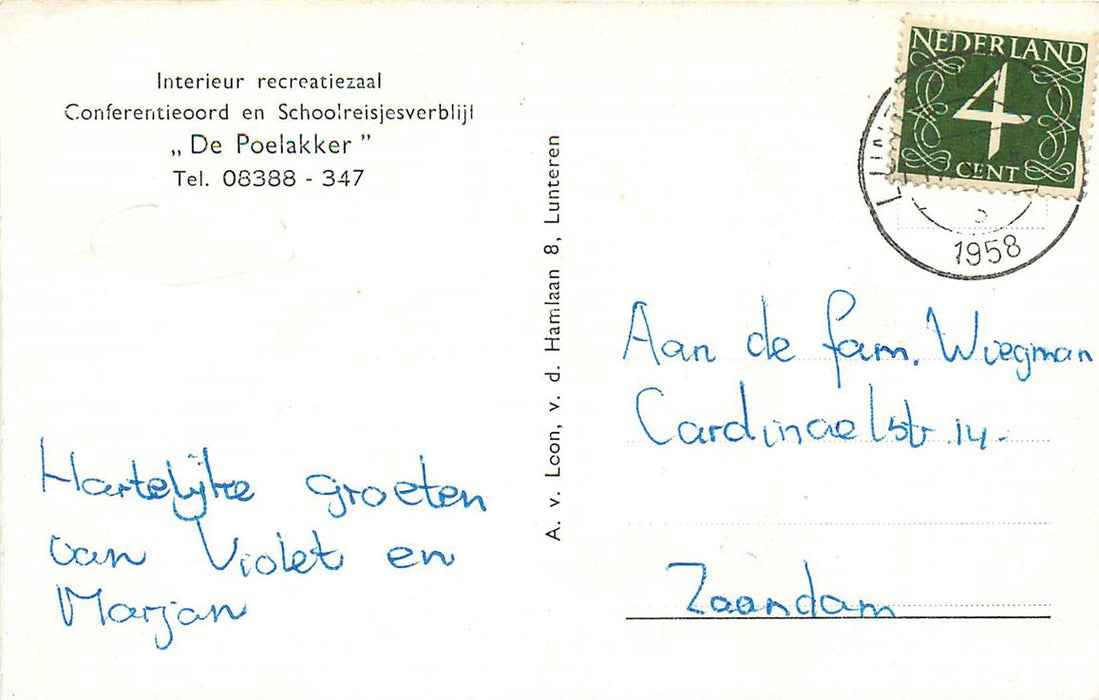 Interieur recreatiezaal
Conferentieoord en Schoolreisjesverblijf
„De Poelakker”
Tel. 08388 - 347
Hartelijke groeten
van Violet en
Marjan
A. v. Loon, v. d. Hamlaan 8, Lunteren
NEDERLAND
4
CENT
1958
Aan de fam. Wiegman
Cardinaelstr. 14.
Zaandam